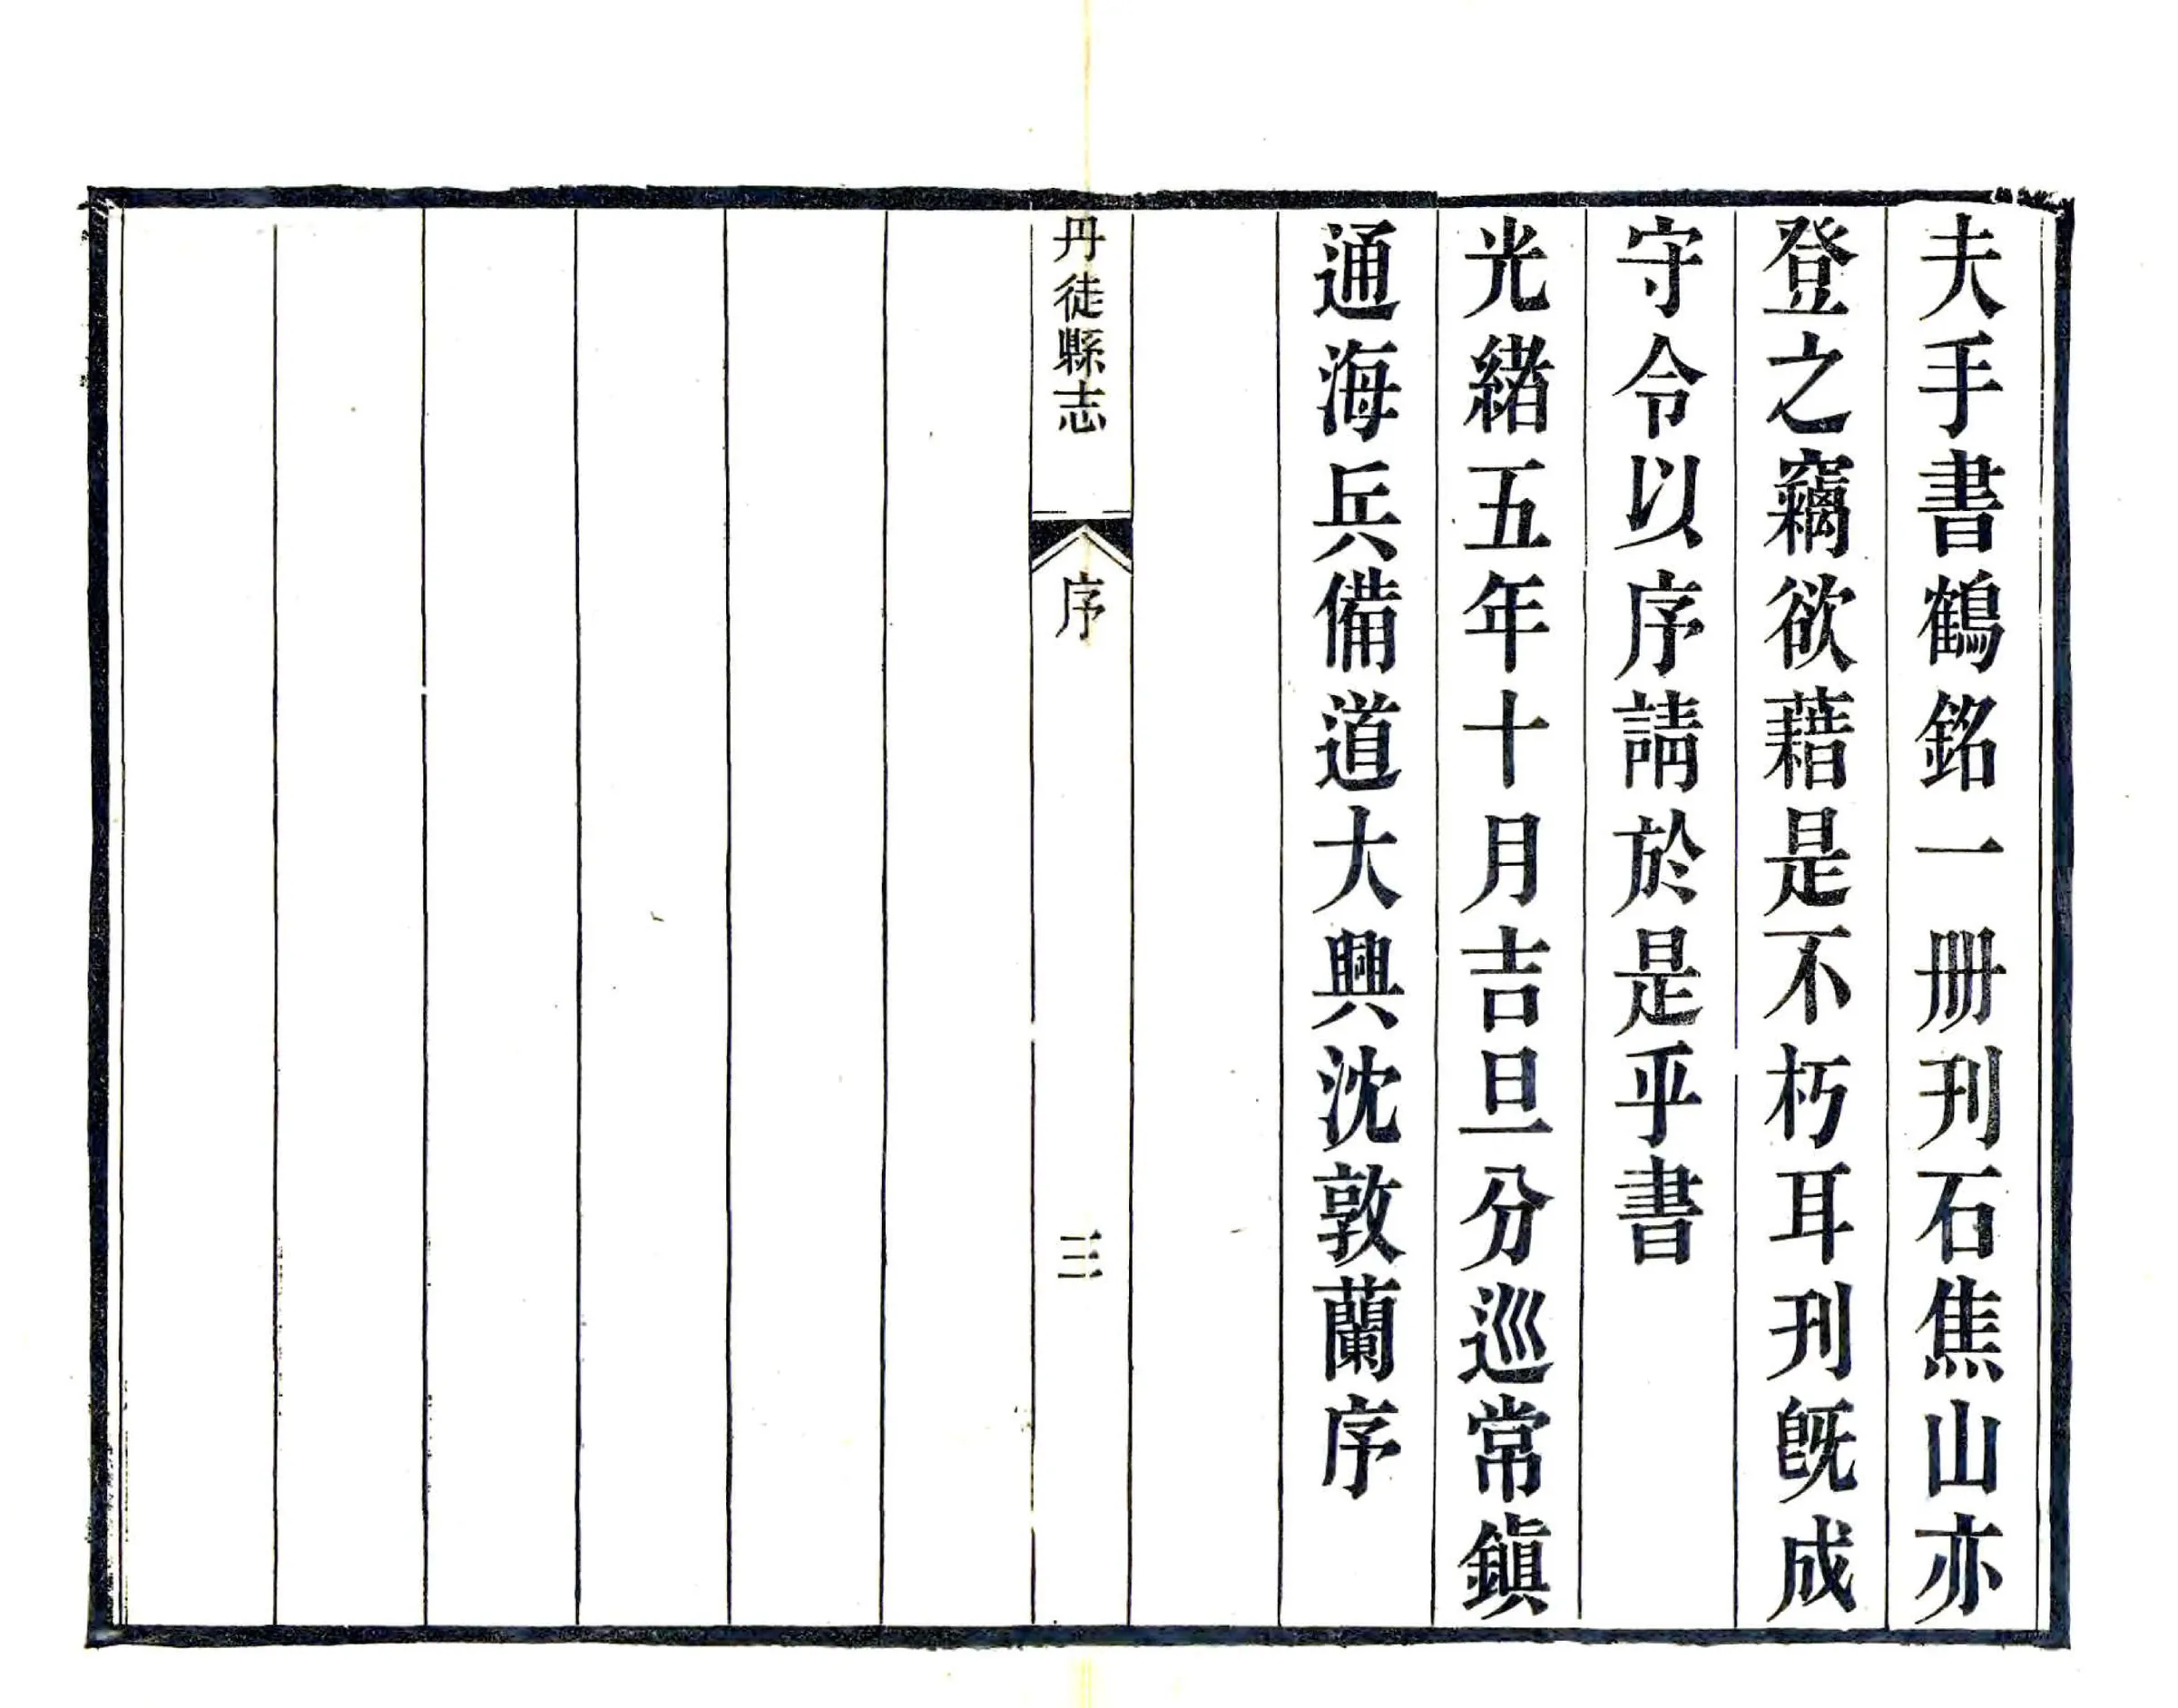 夫手書鶴銘一冊刊石焦山亦
登之竊欲藉是不朽耳刊旣成
守令以序請於是乎書
光緒五年十月吉旦分巡常鎭
通海兵備道大興沈敦蘭序
丹徒縣志
序
三